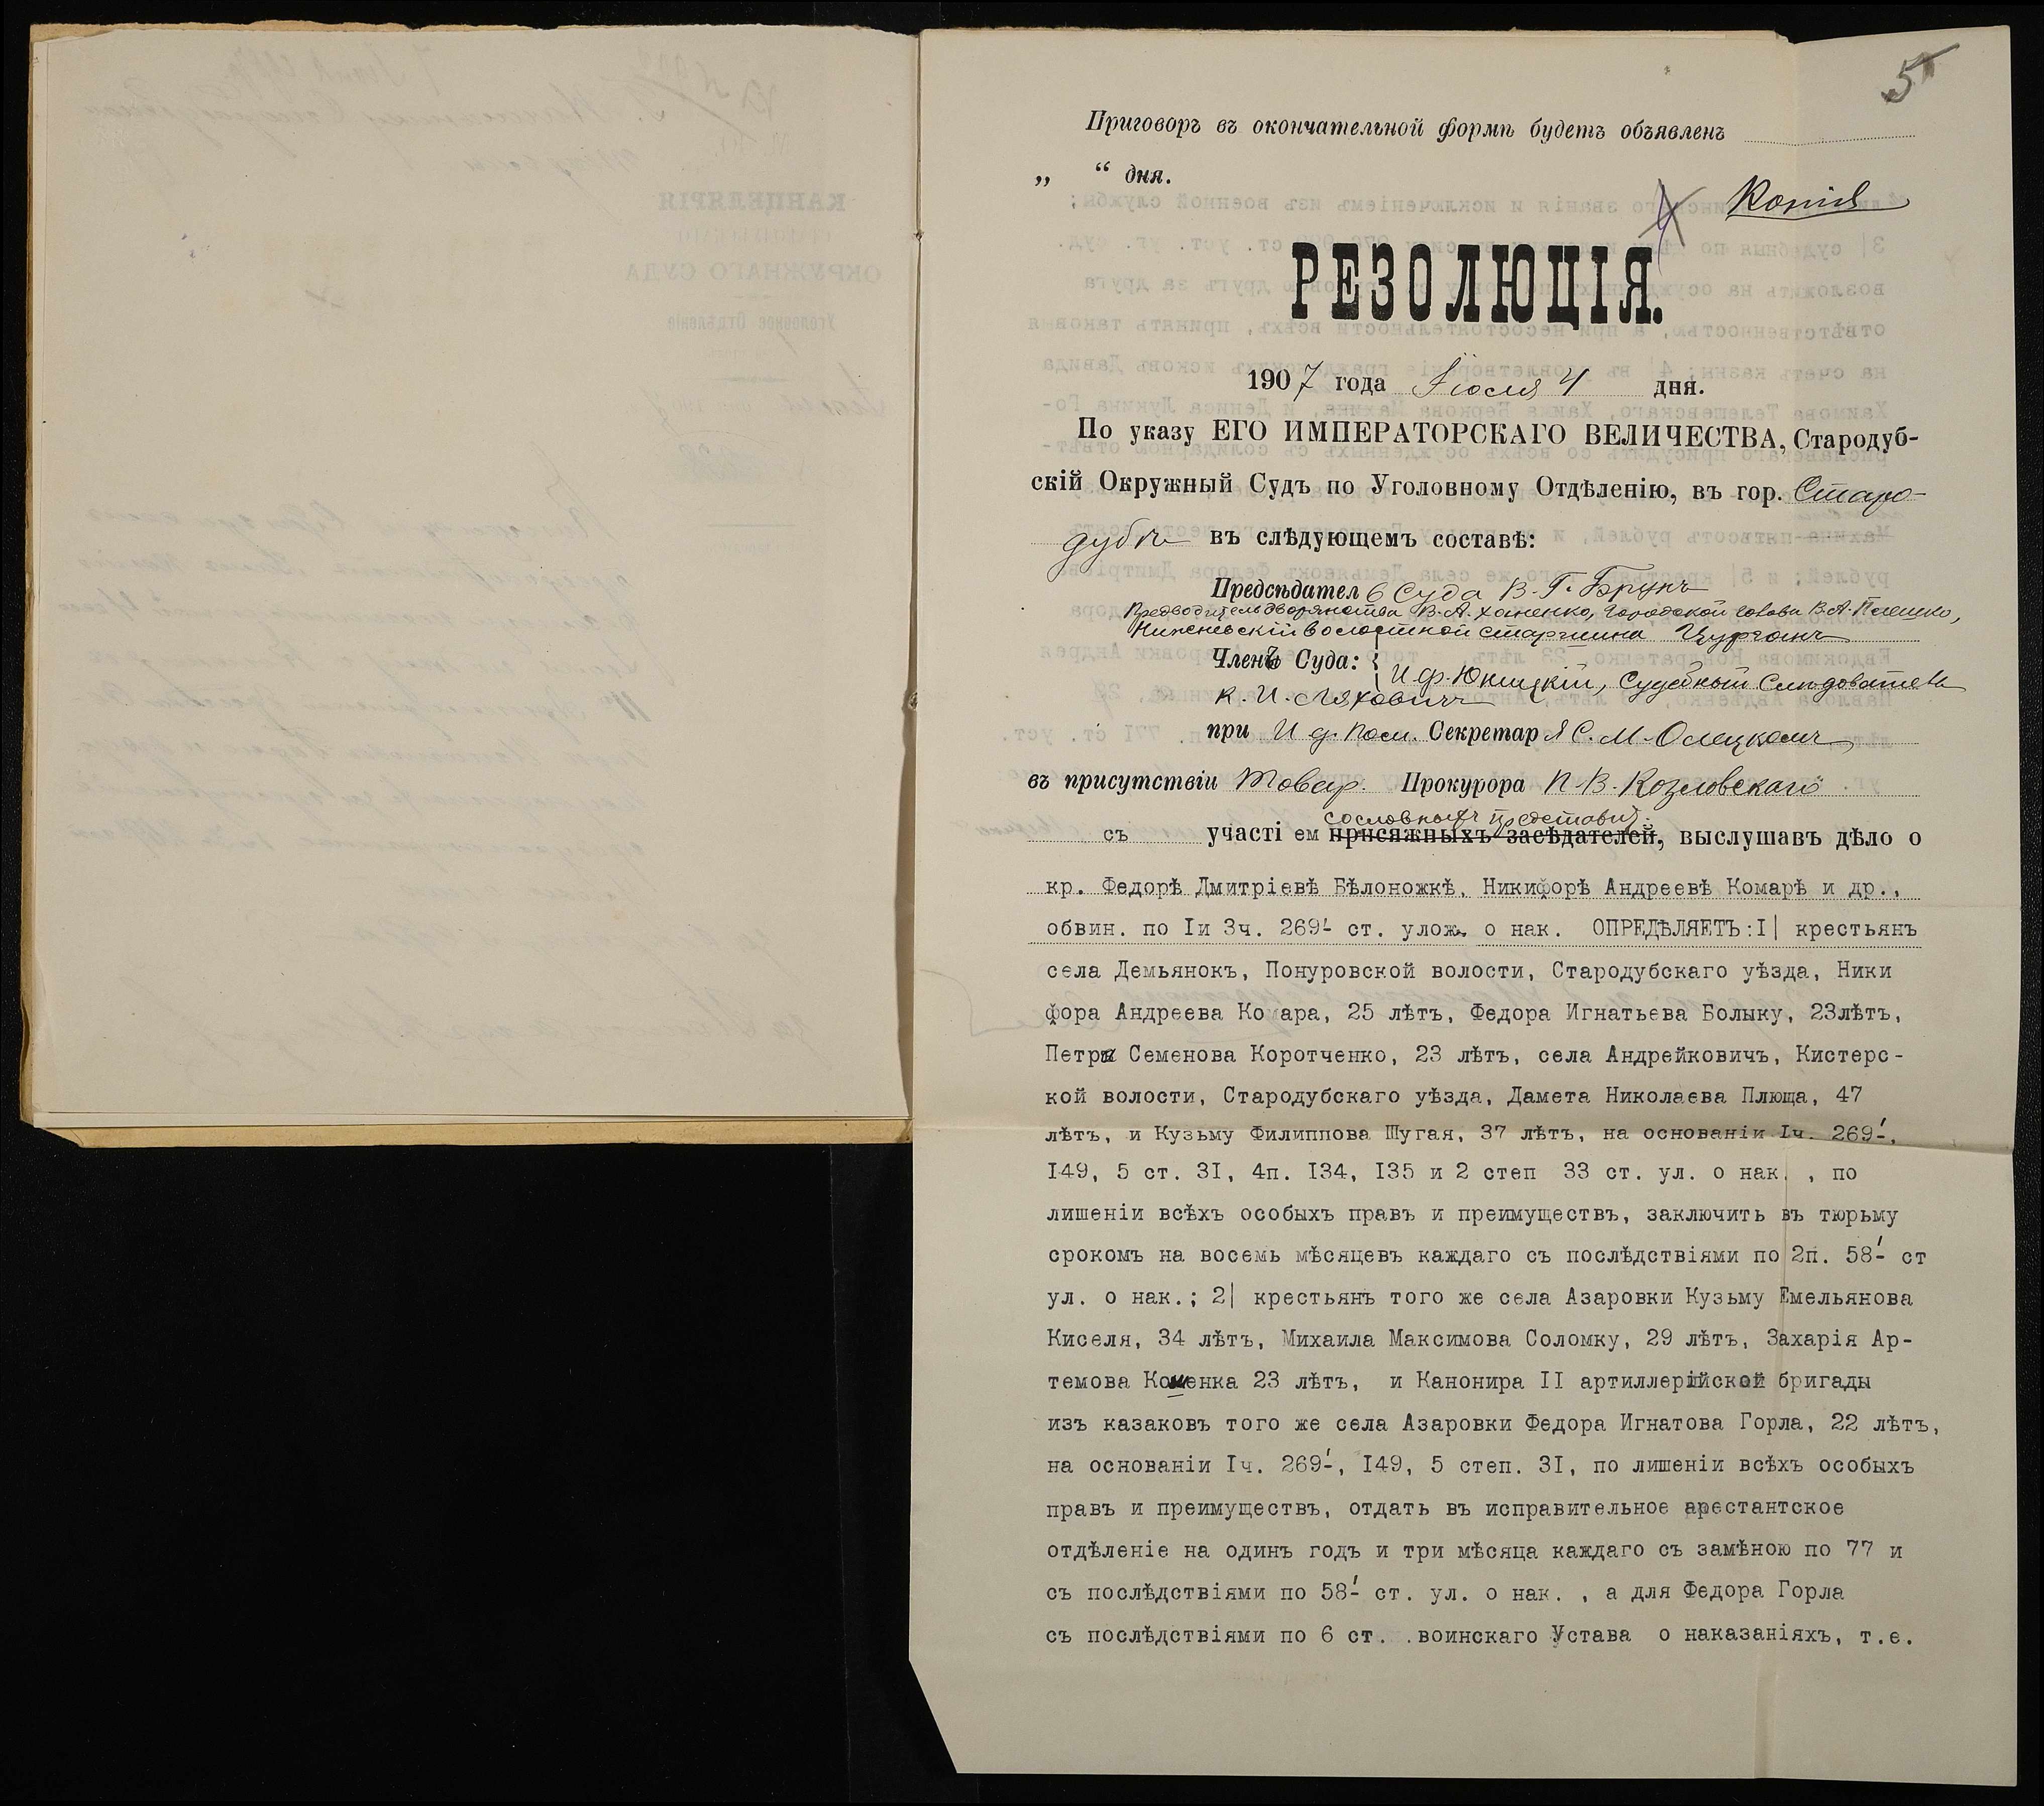 5
Приговоръ въ окончательной формѣ будетъ объявленъ
„ “ дня.
Копія
РЕЗОЛЮЦІЯ.
1907 года Іюля 4 дня.
По указу ЕГО ИМПЕРАТОРСКАГО ВЕЛИЧЕСТВА, Стародуб-
скій Окружный Судъ по Уголовному Отдѣленію, въ гор. Старо-
дубѣ въ слѣдующемъ составѣ:
Предсѣдател ь Суда В. Г. Брунъ
Предводитель дворянства В. А. Ханенко, Городской голова В. А. Плешко,
волостной старшина Цурганъ
Члены Суда: И. Ф. Юницкій, Судебный Слѣдователь
К. И. Ляховичъ
при И. д. пом. Секретаря С. М. Олецкомъ
въ присутствіи Товар. Прокурора П. В. Козловскаго
сословныхъ представит.
съ участіемъ присяжныхъ засѣдателей, выслушавъ дѣло о
кр. Федорѣ Дмитріевѣ Бѣлоножкѣ, Никифорѣ Андреевѣ Комарѣ и др.,
обвин. по Iи 3ч. 269¹ ст. улож. о нак. ОПРЕДѢЛЯЕТЪ:I| крестьянъ
села Демьянокъ, Понуровской волости, Стародубскаго уѣзда, Ники
фора Андреева Комара, 25 лѣтъ, Федора Игнатьева Болыку, 23лѣтъ,
Петра Семенова Коротченко, 23 лѣтъ, села Андрейковичъ, Кистерс-
кой волости, Стародубскаго уѣзда, Дамета Николаева Плюща, 47
лѣтъ, и Кузьму Филиппова Шугая, 37 лѣтъ, на основаніи Iч. 269¹,
I49, 5 ст. 3I, 4п. I34, I35 и 2 степ 33 ст. ул. о нак. , по
лишеніи всѣхъ особыхъ правъ и преимуществъ, заключить въ тюрьму
срокомъ на восемь мѣсяцевъ каждаго съ послѣдствіями по 2п. 58¹ ст
ул. о нак.; 2| крестьянъ того же села Азаровки Кузьму Емельянова
Киселя, 34 лѣтъ, Михаила Максимова Соломку, 29 лѣтъ, Захарія Ар-
темова Коменка 23 лѣтъ, и Канонира II артиллерійской бригады
изъ казаковъ того же села Азаровки Федора Игнатова Горла, 22 лѣтъ,
на основаніи Iч. 269¹, I49, 5 степ. 3I, по лишеніи всѣхъ особыхъ
правъ и преимуществъ, отдать въ исправительное арестантское
отдѣленіе на одинъ годъ и три мѣсяца каждаго съ замѣною по 77 и
съ послѣдствіями по 58¹ ст. ул. о нак. , а для Федора Горла
съ послѣдствіями по 6 ст. .воинскаго Устава о наказаніяхъ, т.е.